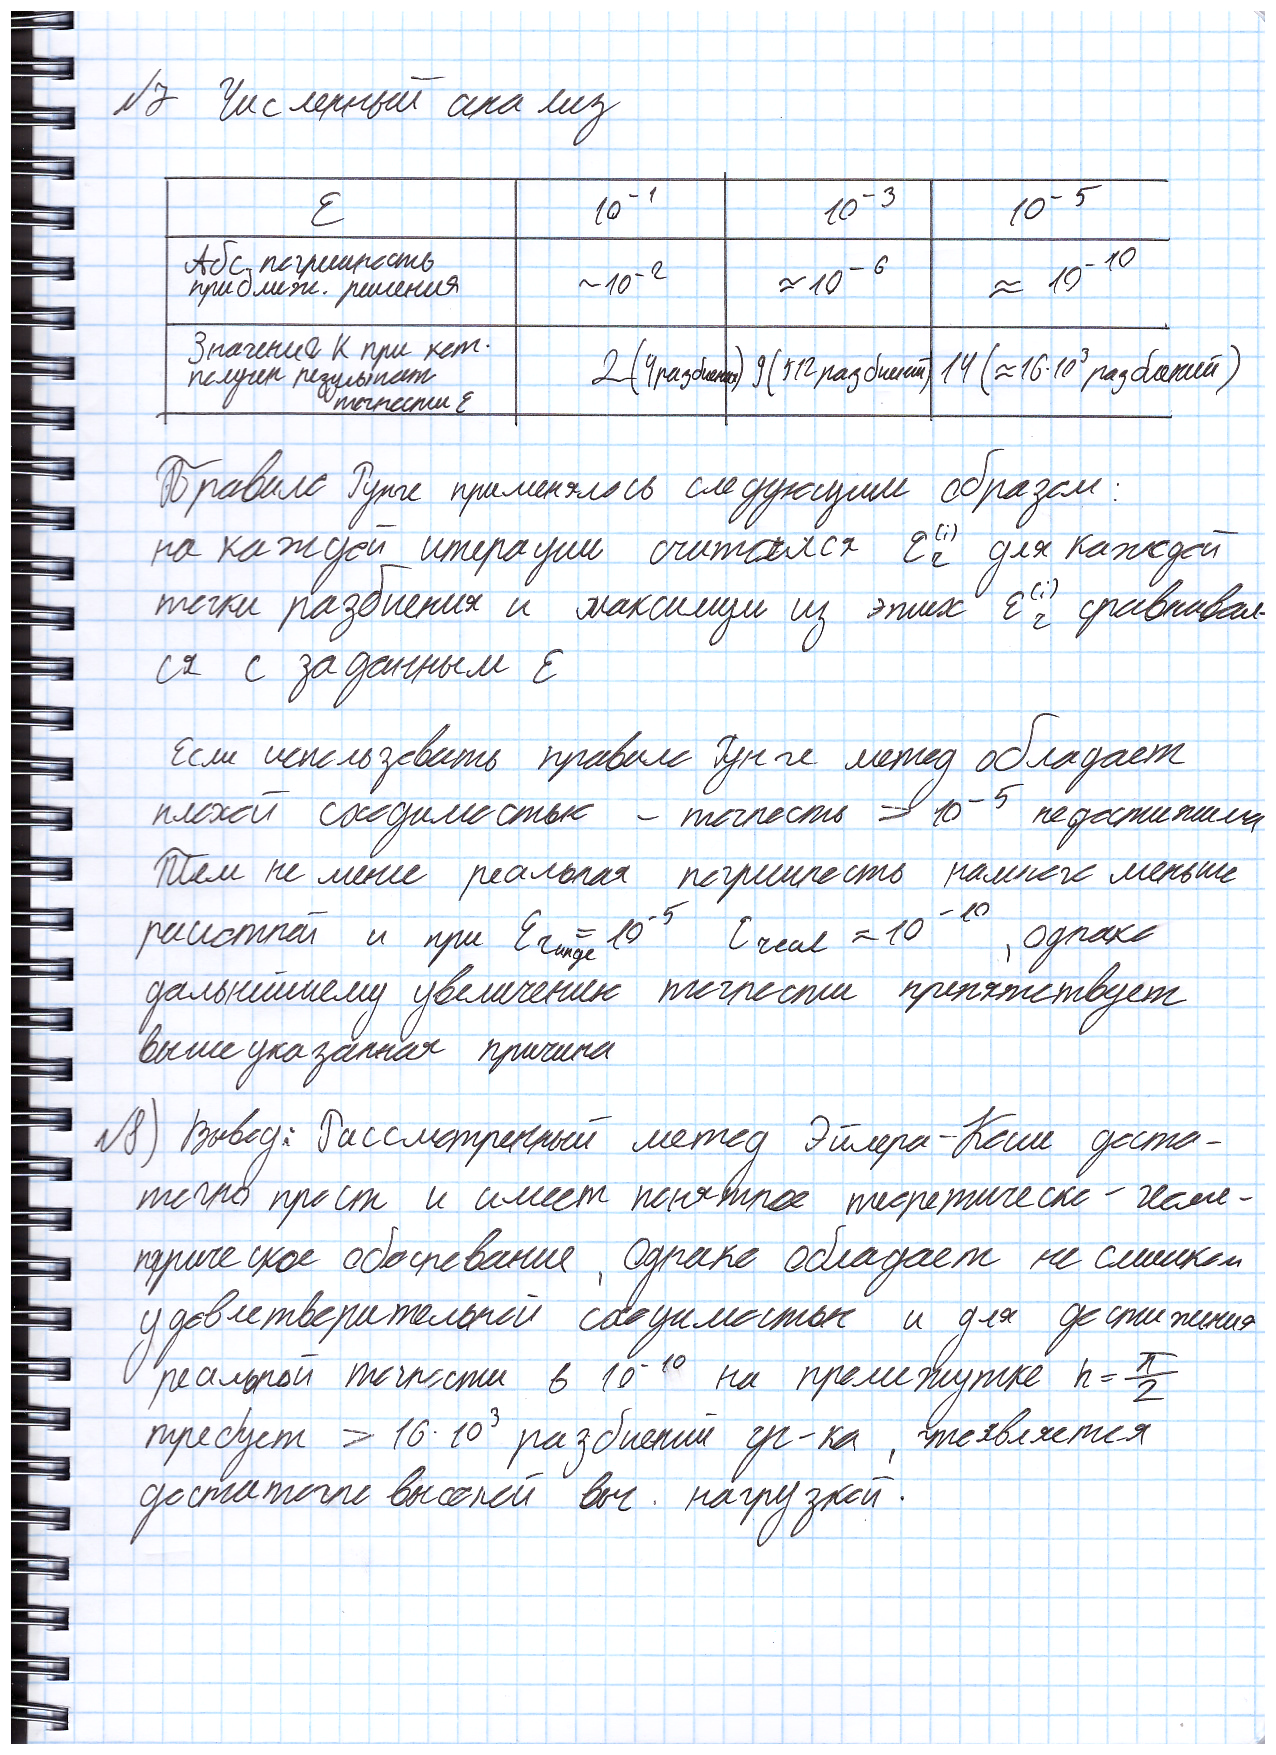 №7 Численный анализ
ε 10⁻¹ 10⁻³ 10⁻⁵
Абс. погрешность
приближ. решения ~10⁻² ≈10⁻⁶ ≈ 10⁻¹⁰
Значение K при кот.
получен результат 2 (4 разбиения) 9 (512 разбиений) 14 (≈16·10³ разбиений)
точности ε
Правило Рунге применялось следующим образом:
на каждой итерации считался ε₂⁽ⁱ⁾ для каждой
точки разбиения и максимум из этих ε₂⁽ⁱ⁾ сравнивал-
ся с заданным ε
Если использовать правило Рунге метод обладает
плохой сходимостью – точность > 10⁻⁵ недостижима
Тем не мение реальная погрешность намного меньше
расчетной и при ε runge = 10⁻⁵ ε real ≈ 10⁻¹⁰, однако
дальнейшему увеличению точности препятствует
вышеуказанная причина
№8) Вывод: Рассмотренный метод Эйлера-Коши доста-
точно прост и имеет понятное теоретическо-геоме-
трическое обоснование, однако обладает не слишком
удовлетворительной сходимостью и для достижения
реальной точности в 10⁻¹⁰ на промежутке h = π/2
требует > 16·10³ разбиений пр-ка, что является
достаточно высокой выч. нагрузкой.